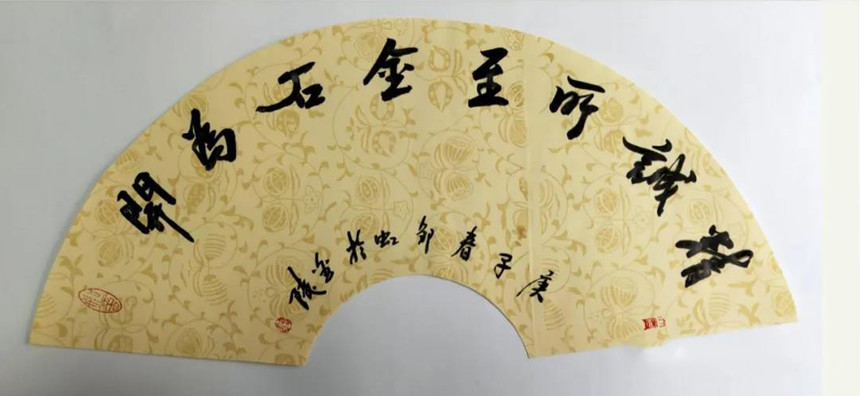 精誠所至金石為開
庚子春邹虹於金陵